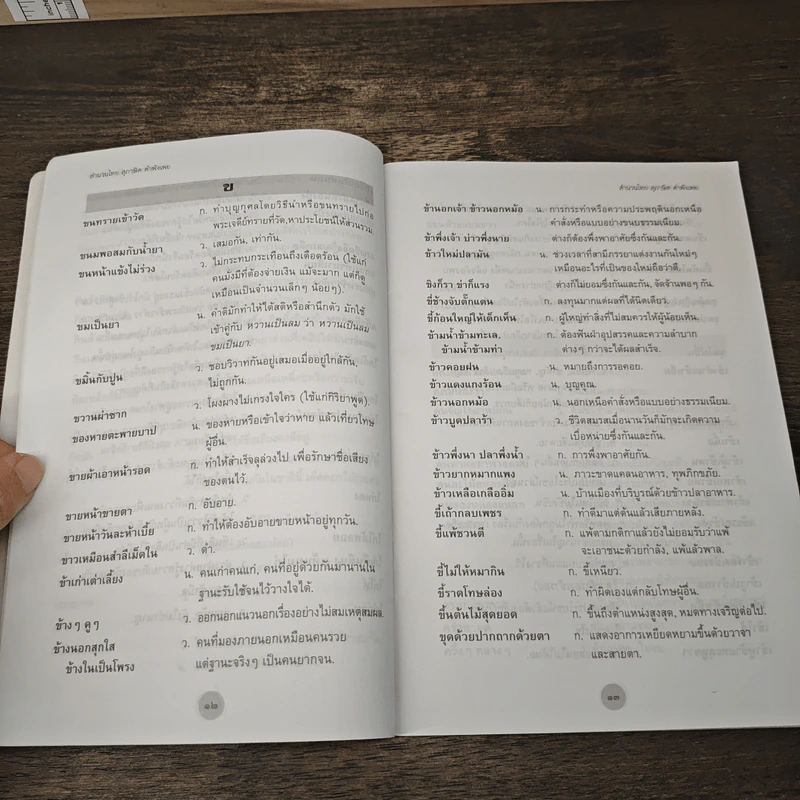 inches
สำนวนไทย สุภาษิต คำพังเพย
ข
ขนทรายเข้าวัด ก. ทำบุญกุศลโดยวิธีนำหรือขนทรายไปก่อ
พระเจดีย์ทรายที่วัด,หาประโยชน์ให้ส่วนรวม.
ขนมพอสมกับน้ำยา ว. เสมอกัน, เท่ากัน.
ขนหน้าแข้งไม่ร่วง ว. ไม่กระทบกระเทือนถึงเดือดร้อน (ใช้แก่
คนมั่งมีที่ต้องจ่ายเงิน แม้จะมาก แต่ก็ดู
เหมือนเป็นจำนวนเล็กๆ น้อยๆ).
ขมเป็นยา น. คำติมักทำให้ได้สติหรือสำนึกตัว มักใช้
เข้าคู่กับ หวานเป็นลม ว่า หวานเป็นลม
ขมเป็นยา.
ขมิ้นกับปูน ว. ชอบวิวาทกันอยู่เสมอเมื่ออยู่ใกล้กัน,
ไม่ถูกกัน.
ขวานผ่าซาก ว. โผงผางไม่เกรงใจใคร (ใช้แก่กิริยาพูด).
ของหายตะพายบาป น. ของหายหรือเข้าใจว่าหาย แล้วเที่ยวโทษ
ผู้อื่น.
ขายผ้าเอาหน้ารอด ก. ทำให้สำเร็จลุล่วงไป เพื่อรักษาชื่อเสียง
ของตนไว้.
ขายหน้าขายตา ก. อับอาย.
ขายหน้าวันละห้าเบี้ย ก. ทำให้ต้องอับอายขายหน้าอยู่ทุกวัน.
ขาวเหมือนสำลีเม็ดใน ว. ดำ.
ข้าเก่าเต่าเลี้ยง น. คนเก่าคนแก่, คนที่อยู่ด้วยกันมานานใน
ฐานะรับใช้จนไว้วางใจได้.
ข้างๆ คูๆ ว. ออกนอกแนวนอกเรื่องอย่างไม่สมเหตุสมผล.
ข้างนอกสุกใส ว. คนที่มองภายนอกเหมือนคนรวย
ข้างในเป็นโพรง แต่ฐานะจริงๆ เป็นคนยากจน.
๑๒
สำนวนไทย สุภาษิต คำพังเพย
ข้านอกเจ้า ข้าวนอกหม้อ น. การกระทำหรือความประพฤตินอกเหนือ
คำสั่งหรือแบบอย่างขนบธรรมเนียม.
ข้าพึ่งเจ้า บ่าวพึ่งนาย ต่างก็ต้องพึ่งพาอาศัยซึ่งกันและกัน.
ข้าวใหม่ปลามัน น. ช่วงเวลาที่สามีภรรยาแต่งงานกันใหม่ๆ
เหมือนอะไรที่เป็นของใหม่ถือว่าดี.
ขิงก็รา ข่าก็แรง ต่างก็ไม่ยอมซึ่งกันและกัน, จัดจ้านพอๆ กัน.
ขี่ช้างจับตั๊กแตน ก. ลงทุนมากแต่ผลที่ได้นิดเดียว.
ขี้ก้อนใหญ่ให้เด็กเห็น ก. ผู้ใหญ่ทำสิ่งที่ไม่สมควรให้ผู้น้อยเห็น.
ข้ามน้ำข้ามทะเล, ก. ต้องฟันฝ่าอุปสรรคและความลำบาก
ข้ามน้ำข้ามท่า ต่างๆ กว่าจะได้ผลสำเร็จ.
ข้าวคอยฝน น. หมายถึงการรอคอย.
ข้าวแดงแกงร้อน น. บุญคุณ.
ข้าวนอกหม้อ น. นอกเหนือคำสั่งหรือแบบอย่างธรรมเนียม.
ข้าวบูดปลาร้า ว. ชีวิตสมรสเมื่อนานวันก็มักจะเกิดความ
เบื่อหน่ายซึ่งกันและกัน.
ข้าวพึ่งนา ปลาพึ่งน้ำ ก. การพึ่งพาอาศัยกัน.
ข้าวยากหมากแพง น. ภาวะขาดแคลนอาหาร, ทุพภิกขภัย.
ข้าวเหลือเกลืออิ่ม น. บ้านเมืองที่บริบูรณ์ด้วยข้าวปลาอาหาร.
ขี้เถ้ากลบเพชร ก. ทำดีมาแต่ต้นแล้วเสียภายหลัง.
ขี้แพ้ชวนตี ก. แพ้ตามกติกาแล้วยังไม่ยอมรับว่าแพ้
จะเอาชนะด้วยกำลัง, แพ้แล้วพาล.
ขี้ไม่ให้หมากิน ก. ขี้เหนียว.
ขี้ราดโทษล่อง ก. ทำผิดเองแต่กลับโทษผู้อื่น.
ขึ้นต้นไม้สุดยอด ก. ขึ้นถึงตำแหน่งสูงสุด, หมดทางเจริญต่อไป.
ขุดด้วยปากถากด้วยตา ก. แสดงอาการเหยียดหยามขึ้นด้วยวาจา
และสายตา.
๑๓